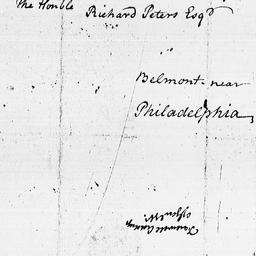 The Honble Richard Peters Esqr
Belmont near
Philadelphia